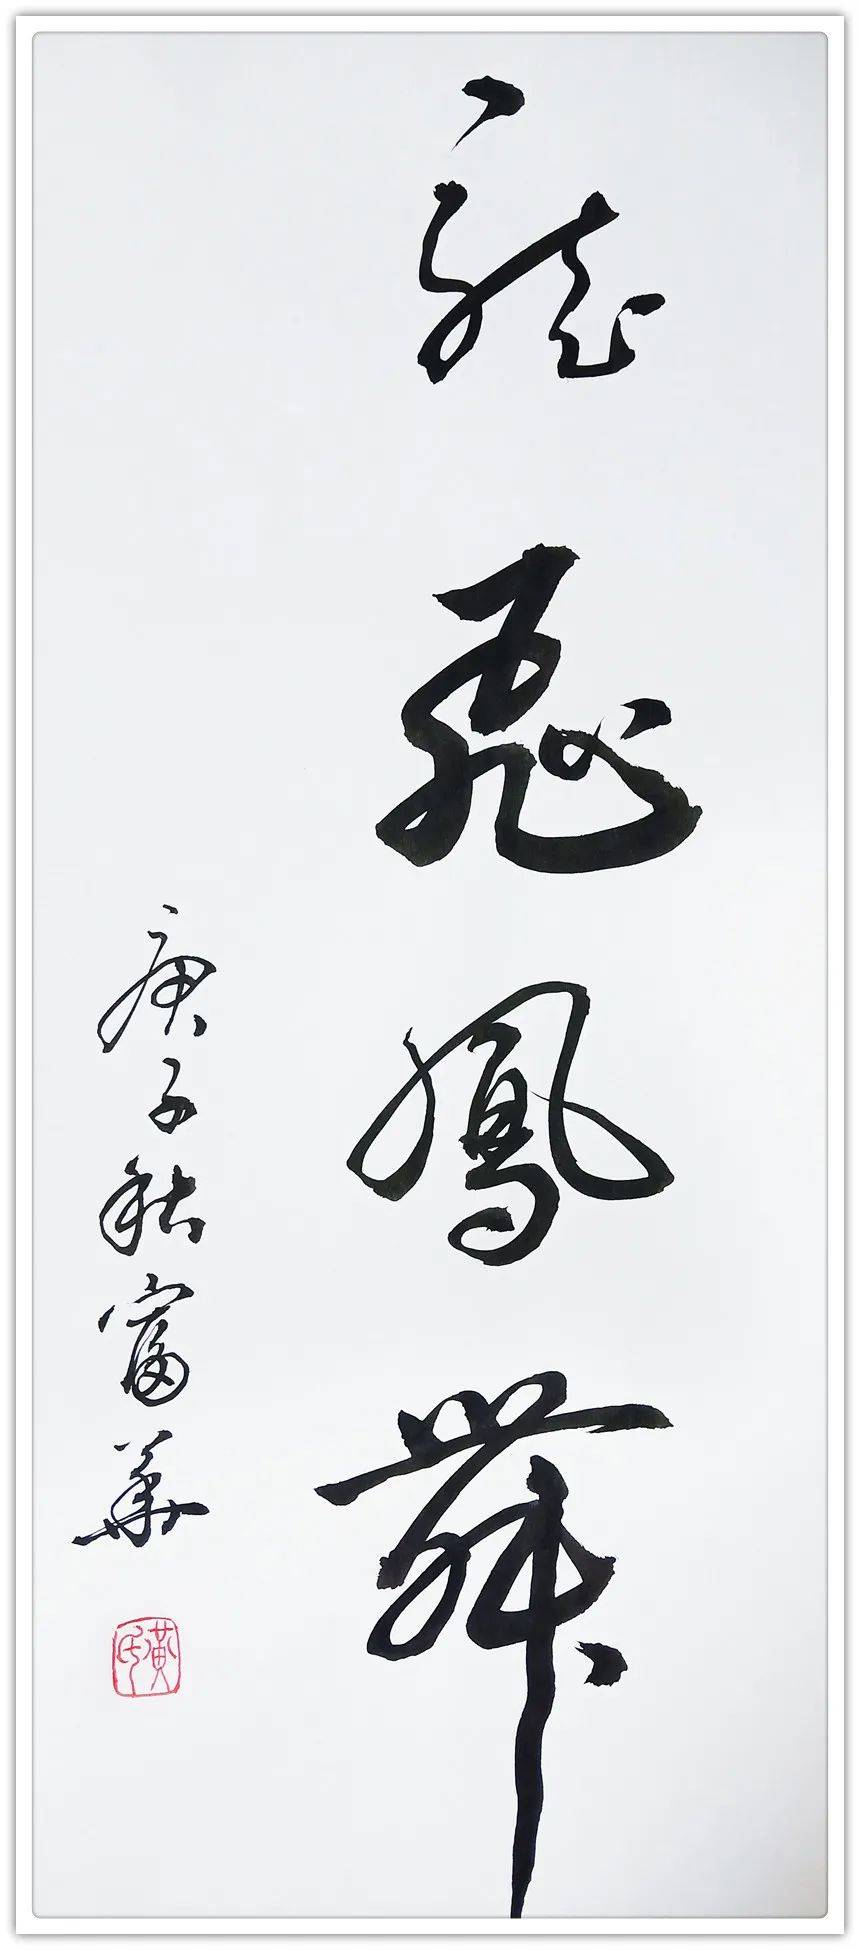 龍飛鳳舞
庚子秋富華
黃氏